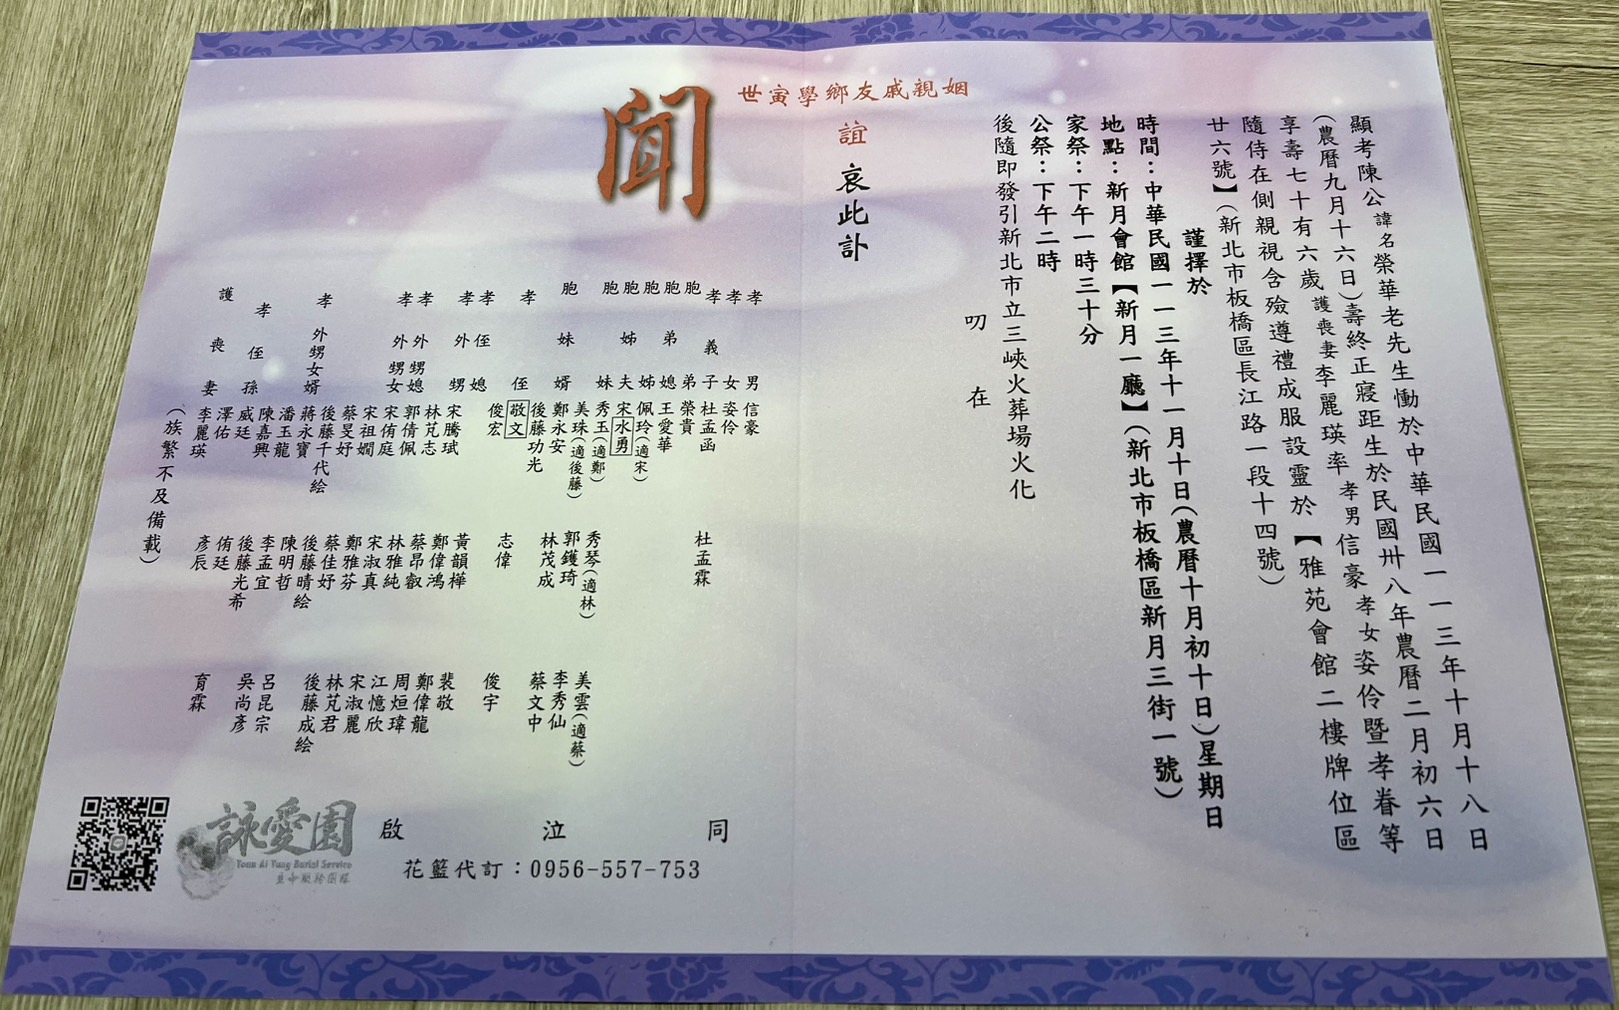 顯考陳公諱名榮華老先生慟於中華民國一一三年十月十八日
(農曆九月十六日)壽終正寢距生於民國卅八年農曆二月初六日
享壽七十有六歲護喪妻李麗瑛率孝男信豪孝女姿伶暨孝眷等
隨侍在側親視含殮遵禮成服設靈於【雅苑會館二樓牌位區
廿六號】(新北市板橋區長江路一段十四號)
謹擇於
時間:中華民國一一三年十一月十日(農曆十月初十日)星期日
地點:新月會館【新月一廳】(新北市板橋區新月三街一號)
家祭:下午一時三十分
公祭:下午二時
後隨即發引新北市立三峽火葬場火化
叨在
姻親戚友鄉學寅世
誼 哀此訃
聞
孝男 信豪
孝女 姿伶
孝義子 杜孟函 杜孟霖
胞弟 榮貴
胞弟媳 王愛華
胞姊 佩玲(適宋)
胞姊夫 宋水勇
胞妹 秀玉(適鄭) 秀琴(適林) 美雲(適蔡)
美珠(適後藤) 郭鑊琦 李秀仙
胞妹婿 鄭永安 林茂成 蔡文中
後藤功光
孝侄 敬文
俊宏 志偉 俊宇
孝侄媳 黃韻樺 裴敬
孝外甥 宋騰斌 鄭偉鴻 鄭偉龍
林芃志 蔡昂叡 周烜瑋
孝外甥媳 郭倩佩 林雅純 江憶欣
孝外甥女 宋侑庭 宋淑真 宋淑麗
宋祖嫺 鄭雅芬 林芃君
蔡旻妤 蔡佳妤 後藤成絵
後藤千代絵 後藤晴絵
孝外甥女婿 蔣永寶 陳明哲 呂昆宗
潘玉龍 李孟宜 吳尚彥
陳嘉興 後藤光希
孝侄孫 威廷 侑廷
澤佑 彥辰 育霖
護喪妻 李麗瑛
(族繁不及備載)
同 泣 啟
花籃代訂:0956-557-753
詠愛園
Yuan Ai Yang Burial Service
生命服務團隊